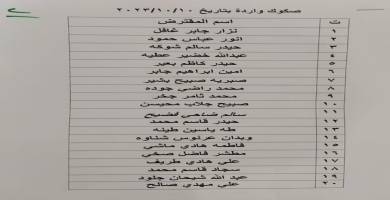 صكوك واردة بتاريخ ٢٠٢٣/١٠/١٠
ت اسم المقترض
١ نزار جابر غافل
٢ انور عباس حمود
٣ حيدر سالم شوكه
٤ عبدالله خضير عطيه
٥ حيدر كاظم بعير
٦ امين ابراهيم جابر
٧ صبريه صبيح بشير
٨ محمد راضي جوده
٩ محمد ثامر جخر
١٠ صبيح جلاب محيسن
١١ سالم ضاحي فضيخ
١٢ حيدر قاسم محمد
١٣ طه ياسين طينه
١٤ ويدان عرنوس شناوه
١٥ فاطمه هادي ماشي
١٦ مطشر فاضل صخي
١٧ علي هادي طريف
١٨ سجاد قاسم محمد
١٩ عبد الله شيحان جلود
٢٠ علي مهدي صالح